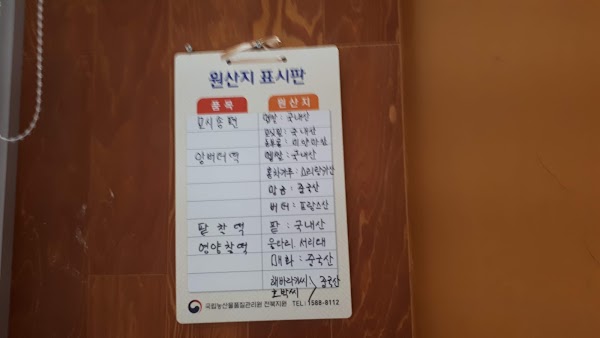 원산지 표시판
품목 원산지
모시송편 멥쌀 : 국내산
모싯잎 : 국내산
동부콩 : 미얀마산
앙버터떡 멥쌀 : 국내산
홍차가루 : 스리랑카산
앙금 : 중국산
버터 : 프랑스산
팥찬떡 팥 : 국내산
영양찰떡 울타리, 서리태
해바라기씨 중국산
호박씨
국립농산물품질관리원 전북지원 TEL : 1588-8112